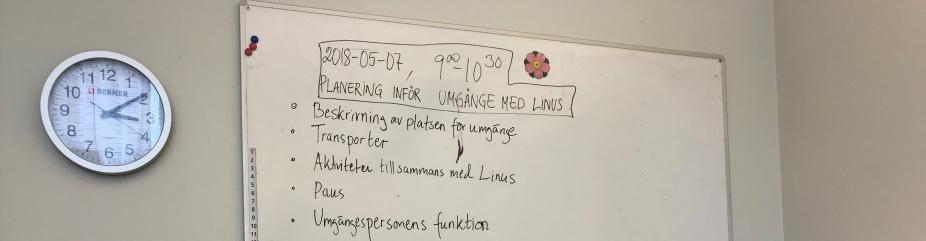 12
11
1
10
BERNER
2
9
3
8
4
7
6
5
2018-05-07, 9⁰⁰-10³⁰
PLANERING INFÖR UMGÄNGE MED LINUS
• Beskrivning av platsen för umgänge
• Transporter
• Aktiviteter tillsammans med Linus
• Paus
• Umgängespersonens funktion